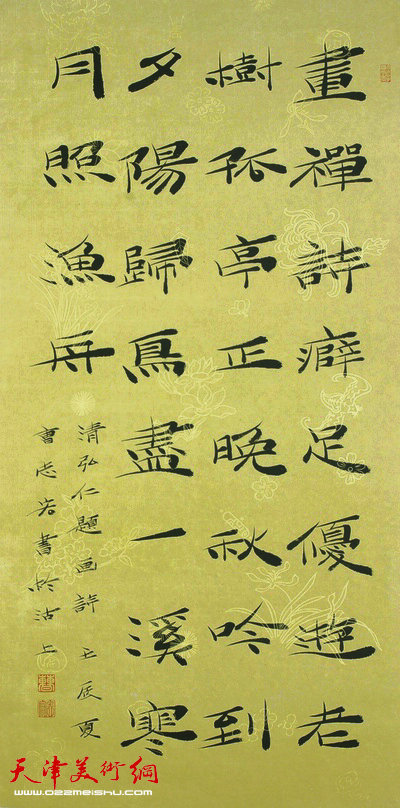 畫禪詩癖足優遊老
樹孤亭正晚秋吟到
夕陽歸鳥盡一溪寒
月照漁舟
清弘仁題画詩 壬辰夏
曹志 書於沽上
天津美術網
www.022meishu.com